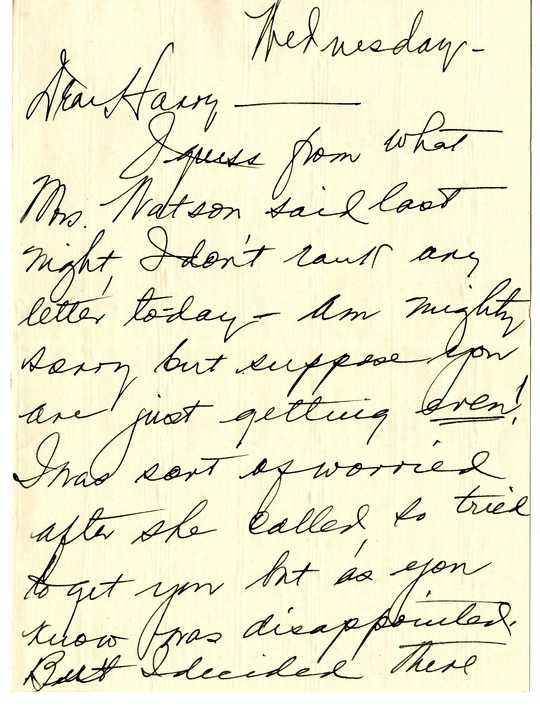 Wednesday-
Dear Harry —
I guess from what
Mrs. Watson said last
night, I don't rank any
letter to-day - Am mighty
sorry but suppose you
are just getting even!
I was sort of worried
after she called, so tried
to get you but as you
know was disappointed.
But I decided there